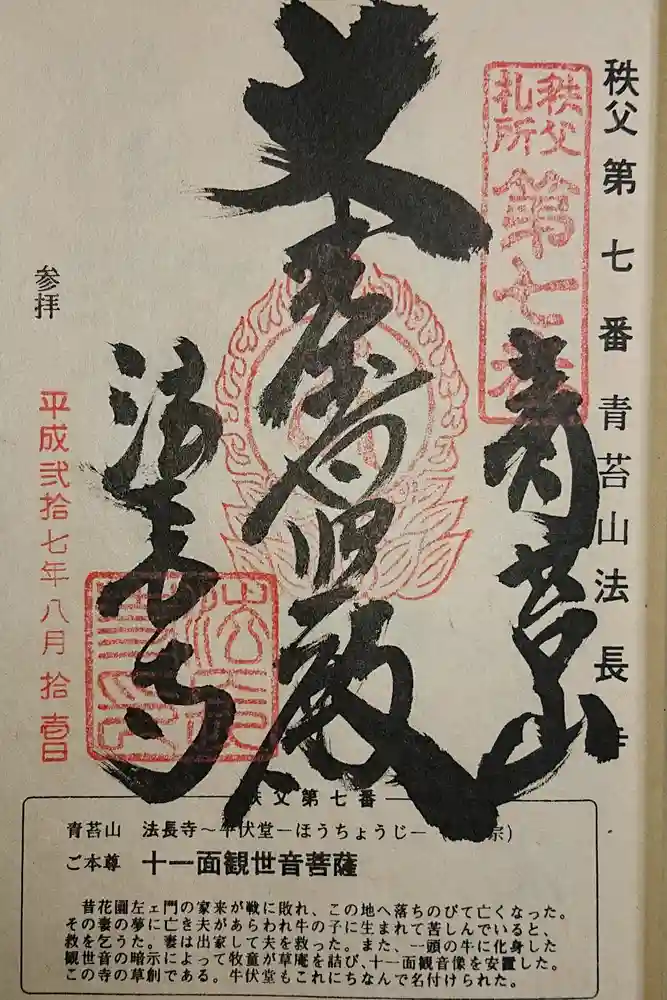 秩父第七番青苔山法長寺
秩父
札所
第七番
青苔山
大悲殿
法長寺
参拝
平成弐拾七年八月拾壱日
秩父第七番
青苔山 法長寺～牛伏堂－ほうちょうじ－ 宗)
ご本尊 十一面観世音菩薩
昔花園左ェ門の家来が戦に敗れ、この地へ落ちのびて亡くなった。
その妻の夢に亡き夫があらわれ牛の子に生まれて苦しんでいると、
救を乞うた。妻は出家して夫を救った。また、一頭の牛に化身した
観世音の暗示によって牧童が草庵を結び、十一面観音像を安置した。
この寺の草創である。牛伏堂もこれにちなんで名付けられた。